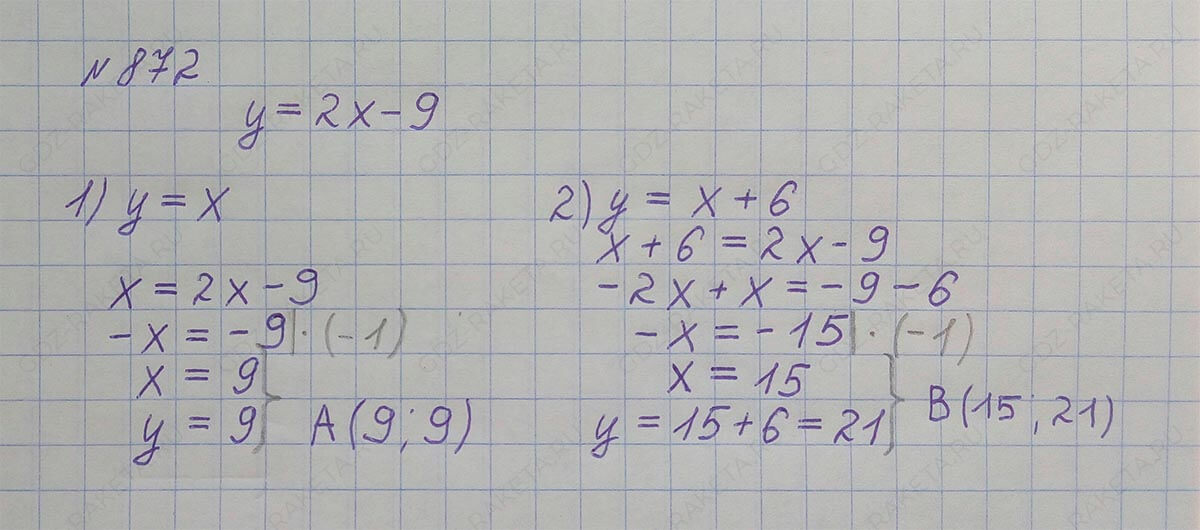 № 872
y = 2x - 9
1) y = x
x = 2x - 9
-x = -9 | · (-1)
x = 9
y = 9 } A(9; 9)
2) y = x + 6
x + 6 = 2x - 9
-2x + x = -9 - 6
-x = -15 | · (-1)
x = 15
y = 15 + 6 = 21 } B(15; 21)
GDZ-RAKETA.RU